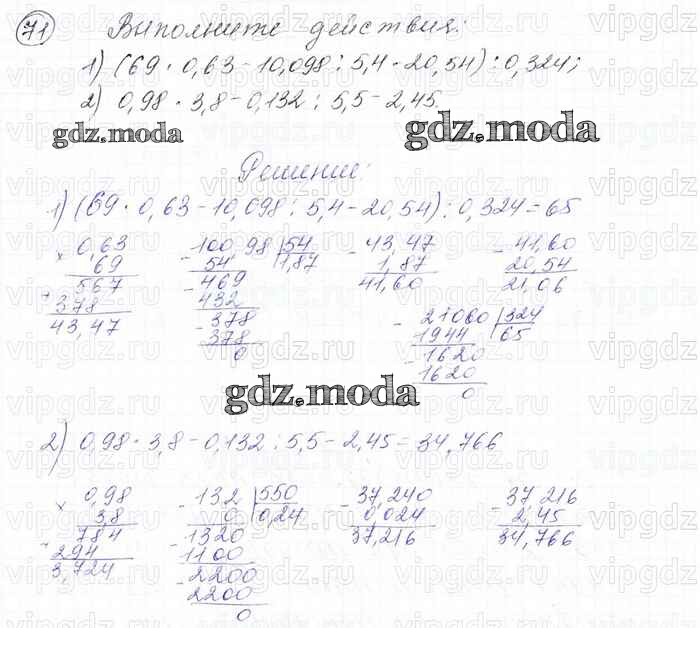 71 Выполните действия:
1) (69 · 0,63 - 10,098 : 5,4 - 20,54) : 0,324;
2) 0,98 · 3,8 - 0,132 : 5,5 - 2,45.
gdz.moda gdz.moda
Решение:
1) (69 · 0,63 - 10,098 : 5,4 - 20,54) : 0,324 = 65
× 0,63 - 100,98 | 54 - 43,47 - 41,60
69 54 1,87 1,87 20,54
567 - 469 41,60 21,06
+ 378 432
43,47 - 378 - 21060 | 324
378 1944 65
0 - 1620
1620
0
gdz.moda
2) 0,98 · 3,8 - 0,132 : 5,5 - 2,45 = 34,766
× 0,98 - 132 | 550 - 37,240 - 37,216
3,8 0 0,24 0,024 2,45
784 - 1320 37,216 34,766
+ 294 1100
3,724 - 2200
2200
0